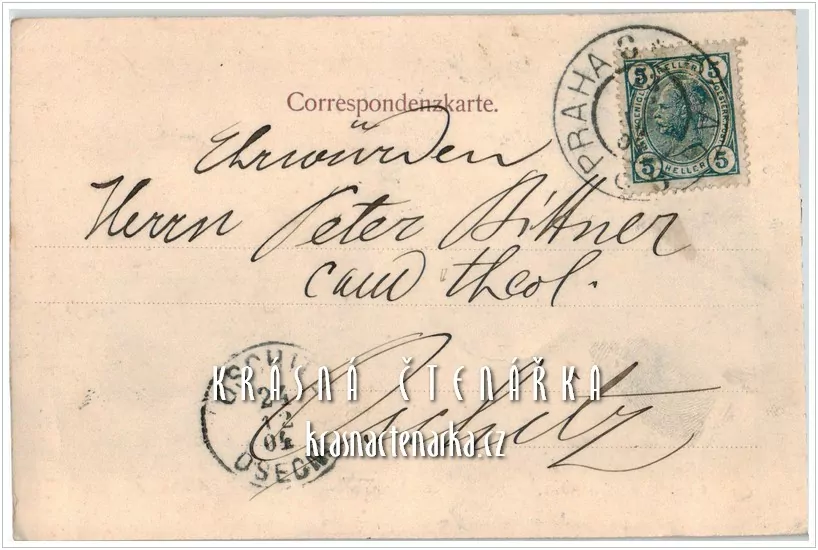 Correspondenzkarte.
PRAHA
5 HELLER 5
5 HELLER 5
Ehrwürden
Herrn Peter Bittner
cand theol.
KRÁSNÁ ČTENÁŘKA
Oschitz
krasnactenarka.cz
24
12
04